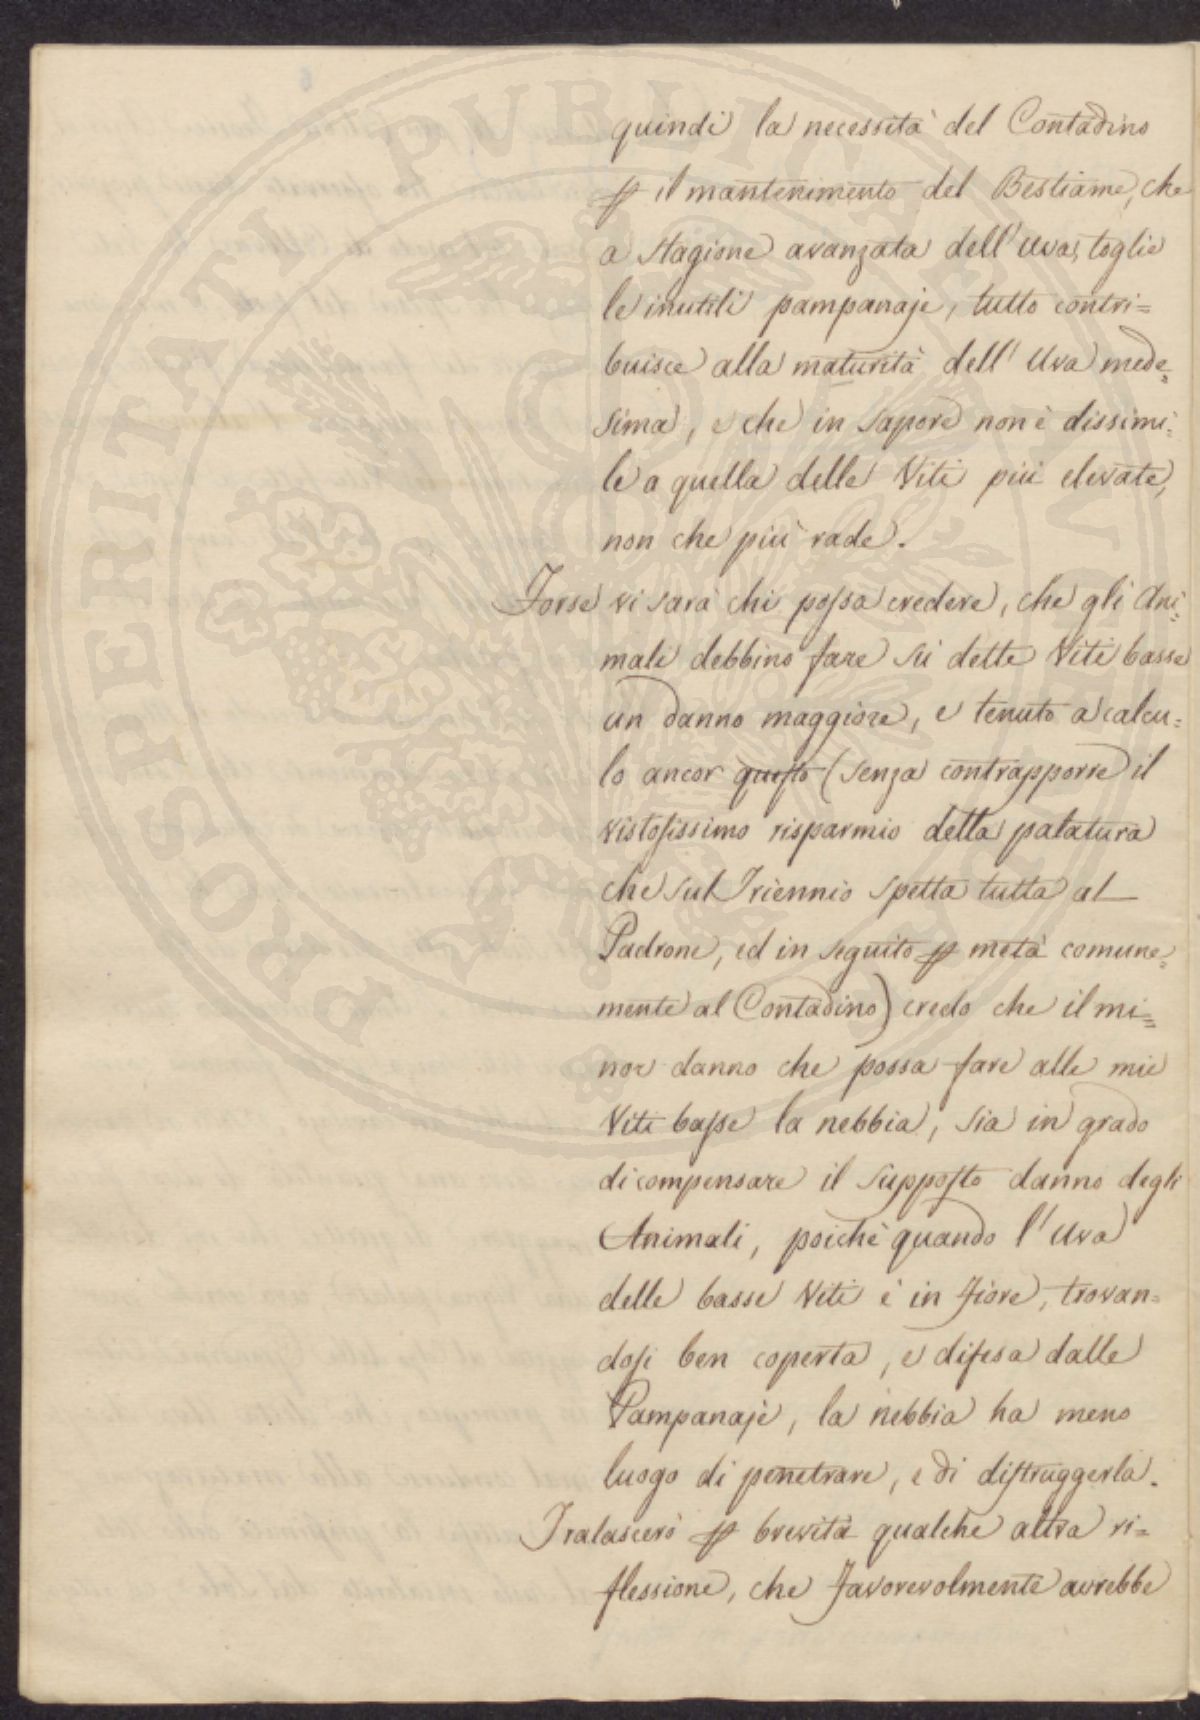 quindi la necessità del Contadino
p il mantenimento del Bestiame, che
a stagione avanzata dell' Uva, toglie
le inutili pampanaje, tutto contri=
buisce alla maturità dell' Uva mede=
sima, e che in sapore non è dissimi=
le a quella delle Viti più elevate,
non che più rade.
Forse vi sarà chi possa credere, che gli Ani=
mali debbino fare sù dette Viti basse
un danno maggiore, e tenuto a calcu=
lo ancor questo (senza contrapporre il
vistosissimo risparmio della palatura
che sul Triennio spetta tutta al
Padrone, ed in seguito p metà comune=
mente al Contadino) credo che il mi=
nor danno che possa fare alle mie
Viti basse la nebbia, sia in grado
di compensare il supposto danno degli
Animali, poichè quando l' Uva
delle basse Viti è in fiore, trovan=
dosi ben coperta, e difesa dalle
Pampanaje, la nebbia ha meno
luogo di penetrare, e di distruggerla.
Tralascerò p brevità qualche altra ri=
flessione, che favorevolmente avrebbe
PROSPERITATI PUBLICAE